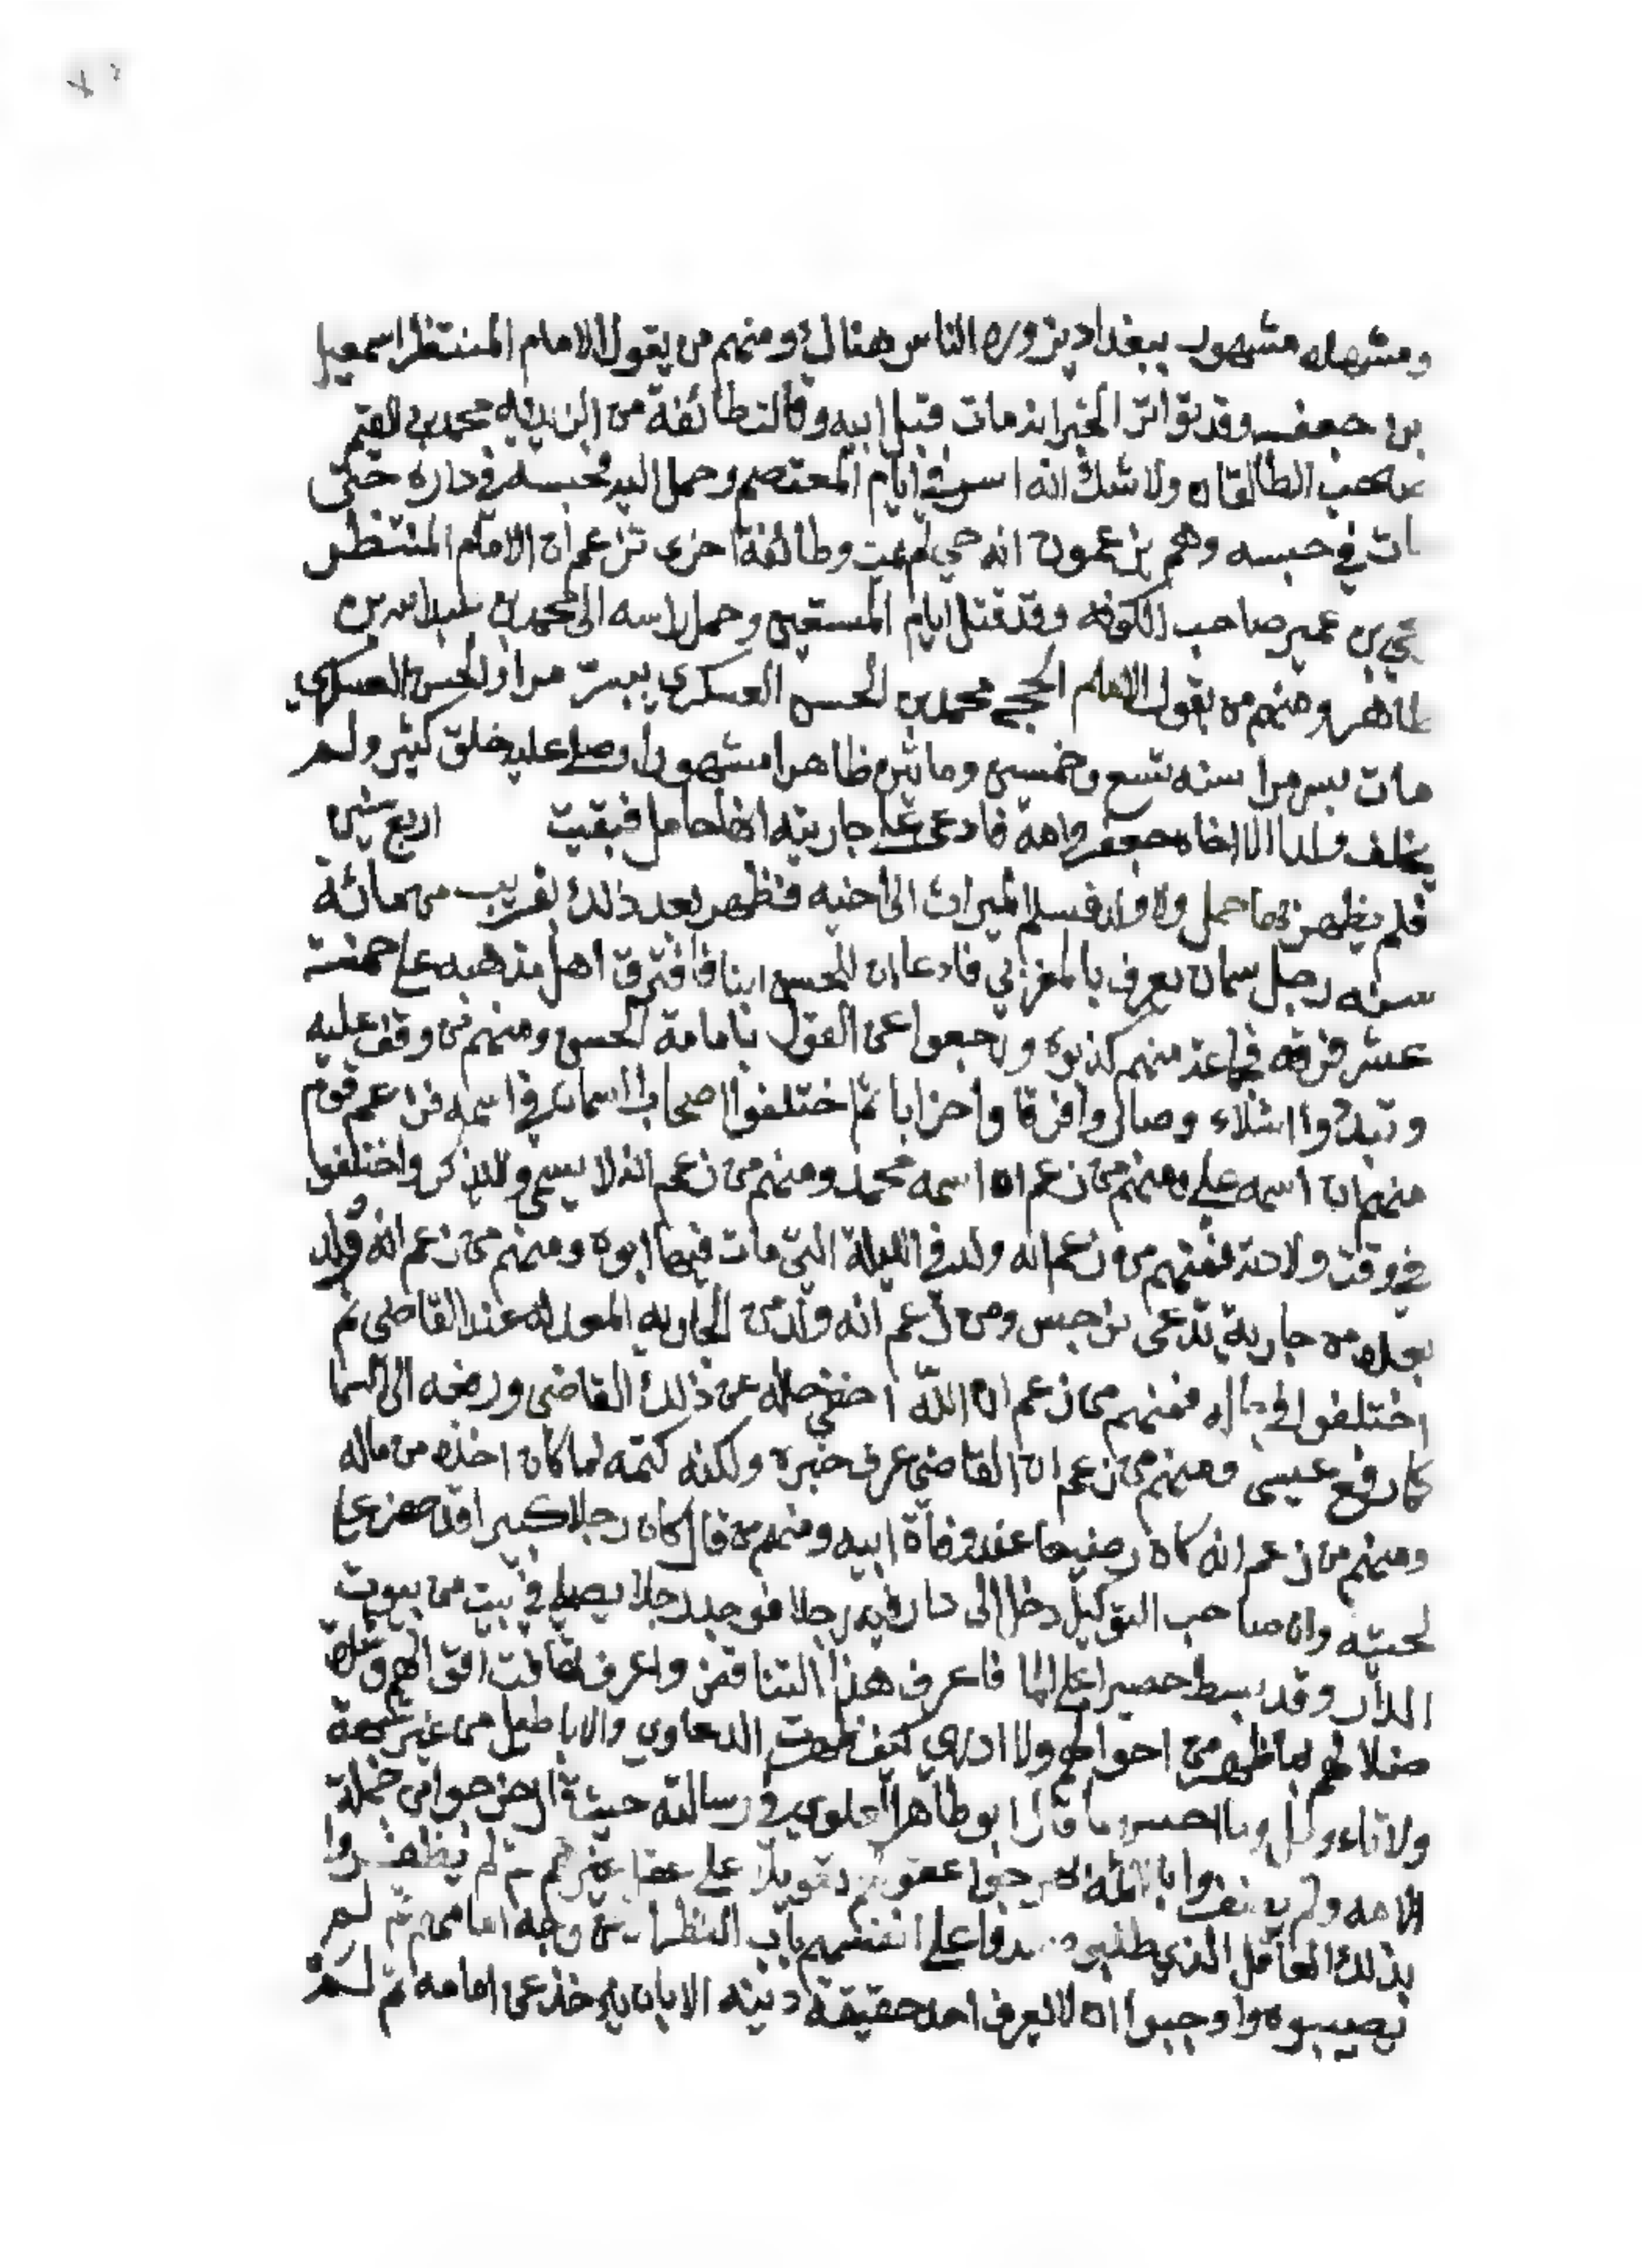 ومشهده مشهور ببغداد يزوره الناس هناك ومنهم من يقول الامام المنتظر اسمعيل
بن جعفر وقد تواتر الخبر انه مات قبل ابيه وقالت طائفة من الزيديه محمد بن القيم
صاحب الطالقان ولا شك انه اسر في ايام المعتصم وحمل اليه فحبسه في داره حتى
مات في حبسه وهم يزعمون انه حي لم يمت وطائفة اخرى تزعم ان الامام المنتظر
يحيى بن عمير صاحب الكوفه وقد قتل ايام المستعين وحمل راسه الى محمد بن عبد الله بن
طاهر ومنهم من يقول الامام الحجه محمد بن الحسن العسكري بسر مرا والحسن العسكري
مات بسر مرا سنه تسع وخمسين ومائتين ظاهرا مشهورا وصلى عليه خلق كثير ولم
يخلف ولدا الا اخاه جعفر وامه فادعى على جاريته انها حامل فبقيت اربع سنين
فلم يظهر بها حمل ولا ولد فسلم الميراث الى اخيه فظهر بعد ذلك بقريب من مائة
سنه رجل سمان يعرف بالمغربي فادعا ان للحسن ابنا فافترق اهل مذهبه على خمسة
عشر فرقه فجماعة منهم كذبوه ورجعوا عن القول بامامة الحسن ومنهم من وقف عليه
وتبددوا اشلاء وصاروا فرقا واحزابا ثم اختلفوا اصحاب السمان في اسمه فزعم قوم
منهم ان اسمه علي ومنهم من زعم ان اسمه محمد ومنهم من زعم انه لا يسمى ولا يذكر واختلفوا
في وقت ولادته فمنهم من زعم انه ولد في الليلة التي مات فيها ابوه ومنهم من زعم انه ولد
بعده من جارية تدعى نرجس ومن زعم انه ولد من الجاريه المعدله عند القاضي ثم
اختلفوا في حاله فمنهم من زعم ان الله اخفى حمله عن ذلك القاضي ورفعه الى السما
كما رفع عيسى ومنهم من زعم ان القاضي عرف خبره ولكنه كتمه لما كان اخذه من ماله
ومنهم من زعم انه كان رضيعا عند وفاة ابيه ومنهم من قال كان رجلا كبيرا قد حضر على
لحيته وان صاحب التوكيل دخل الى دار فيه رجلا فوجد رجلا يصلي في بيت من بيوت
الدار وقد بسط حصيرا على الما فاعرف هذا التناقض واعرف تهافت اقوالهم وشدة
ضلالهم بما ظهر من احوالهم ولا ادري كيف ظهرت الدعاوي والاباطيل من غير شبهة
ولا تاويل وما احسن ما قال ابو طاهر العلوي في رسالته حيث اخرجوا من جملة
الامه ولم ينتفعوا بالائمة اخرجوا عقولهم تعويلا على عقل غيرهم ثم لم يظفروا
بذلك العاقل الذي طلبوه وسدوا على انفسهم باب النظر من وجه امامهم ثم لم
يصيبوه واوجبوا ان لا يعرف احد حقيقة دينه الا بان يوخذ عن امامه ثم لم